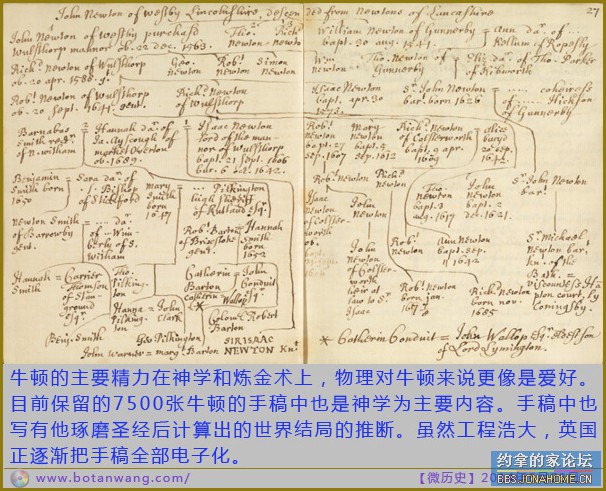 John Newton of westby Lincolnshire, descended from Newtons of Lancashire
27
John Newton of westby purchasd
Wulsthorp mannor ob. 22 dec. 1563.
William Newton of Gunnerby = Ann da.r of
bapt. 30 aug. 1541.
Kellum of Ropesly
Rich.d Newton of Wulsthorp
Geo. Newton
Rob.t Newton
Simon Newton
ob. 20 apr. 1588.
Newton of Gunnerby
Eliz. da.r of Tho. Parker
of Kibworth
Rob.t Newton of wulsthorp
ob. 20 sept. 1641. gent.
Rich.d Newton of wulsthorp
Isaac Newton
bapt. apr. 30
S.r John Newton
bar. born 1626
coheiress of
Hickson of Gunnerby
Barnabas Smith rect.r of N. witham
Hannah da.r of Ja. Ayscough of market Overton ob. 1689.
Isaac Newton lord of the mannor of Wulsthorp bapt. 21 sept. 1606 bur. 6 oct. 1642.
Rob.t Newton bapt. 27 sep. 1607
Mary Newton bapt. 5 sep. 1612
Rich.d Newton of Colsterworth bapt. 9 apr. 1609
Benjamin Smith born 1650
Sara
Bishop of Sleeford
mary Smith born 1647
Pilkington high sheriff of Rutland Esq.r
Rob.t Newton
Rich.d Newton
Tho. Newton bapt. 3 aug. 1617
John Newton bapt. dec. 1621.
S.r John Newton bar.t
Newton Smith of Barrowby gent.
da.r of
Wimberly of S. witham
Rob.t Barton of Brigstoke gent.
Hannah Smith born 1652
John Newton
John Newton of Colsterworth heir at law to S.r Isaac
Rob.t Newton
Ann Newton bapt. sep. 11 1644
S.r Michael Newton bar.t kn.t of the Bath.
viscountess Hampton court, by Coningsby.
Hannah Smith
Carrier Thomson of Stanground Esq.r
Tho. Pilkington
Catherin Barton
John Conduit Esq.r
Catherin = Wallop
Hanna = John Clark
Colonel Robert Barton
Rob.t Newton born jan. 1677
Rich.d Newton born nov. 1685
Benj. Smith
Geo. Pilkington
SIR ISAAC NEWTON Kn.t
John Warner = mary Barton
* Catherin Conduit = John Wallop Esq.r eldest son of Lord Lymington.
牛顿的主要精力在神学和炼金术上，物理对牛顿来说更像是爱好。
目前保留的7500张牛顿的手稿中也是神学为主要内容。手稿中也
写有他琢磨圣经后计算出的世界结局的推断。虽然工程浩大，英国
正逐渐把手稿全部电子化。
www.botanwang.com/
【微历史】20
约拿的家论坛
BBS.JONAHOME.CN